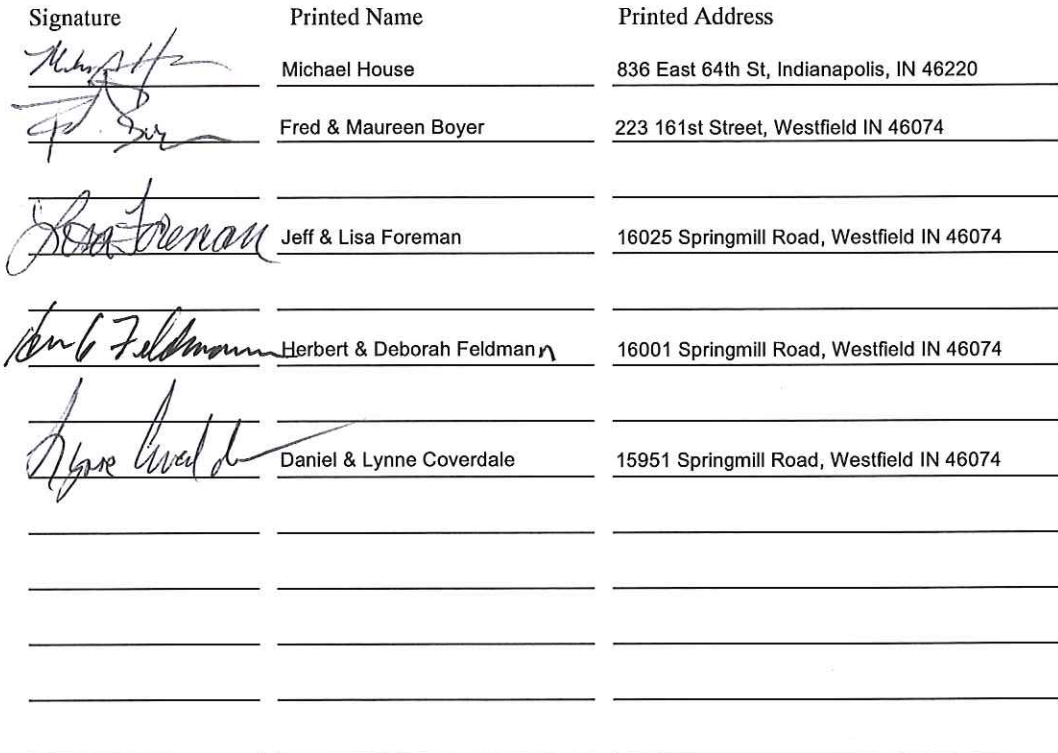 Signature Printed Name Printed Address
Michael House 836 East 64th St, Indianapolis, IN 46220
Fred & Maureen Boyer 223 161st Street, Westfield IN 46074
Lisa Foreman Jeff & Lisa Foreman 16025 Springmill Road, Westfield IN 46074
Feldmann Herbert & Deborah Feldmann 16001 Springmill Road, Westfield IN 46074
Lynne Daniel & Lynne Coverdale 15951 Springmill Road, Westfield IN 46074